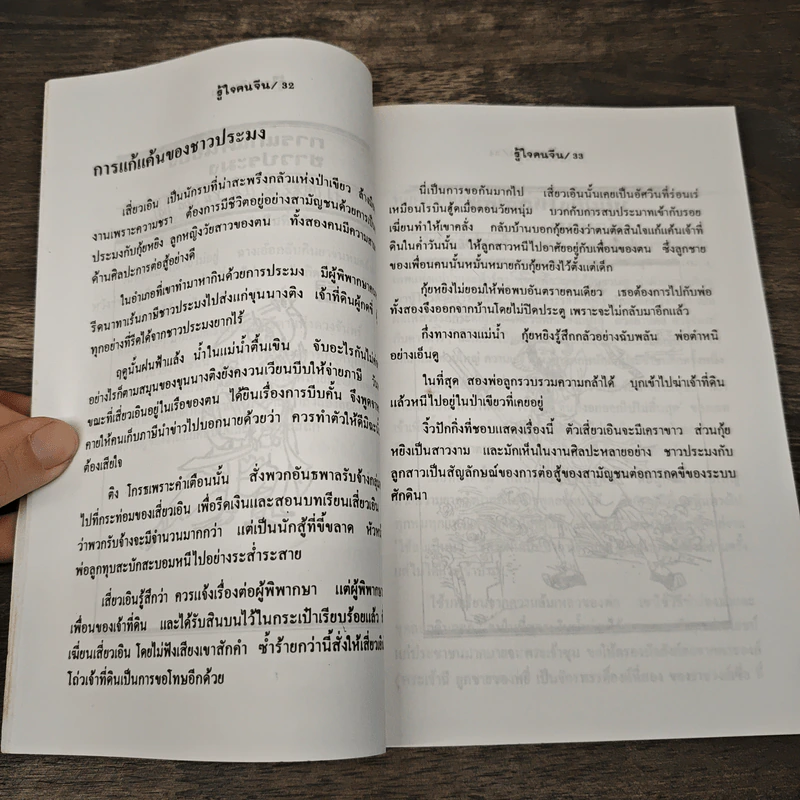 รู้ใจคนจีน/ 32
การแก้แค้นของชาวประมง
เสี่ยวเอิน เป็นนักรบที่น่าสะพรึงกลัวแห่งป่าเขียว ล้าง
งานเพราะความชรา ต้องการมีชีวิตอยู่อย่างสามัญชนด้วยการเป็น
ประมงกับกุ้ยหยิง ลูกหญิงวัยสาวของตน ทั้งสองคนมีความ
ด้านศิลปะการต่อสู้อย่างดี
ในอำเภอที่เขาทำมาหากินด้วยการประมง มีผู้พิพากษา
รีดนาทาเร้นภาษีชาวประมงไปส่งแก่ขุนนางติง เจ้าที่ดินผู้กดขี่
ทุกอย่างที่รีดได้จากชาวประมงยากไร้
ฤดูนั้นฝนฟ้าแล้ง น้ำในแม่น้ำตื้นเขิน จับอะไรกันไม่
อย่างไรก็ตามสมุนของขุนนางติงยังคงวนเวียนบีบให้จ่ายภาษี
ขณะที่เสี่ยวเอินอยู่ในเรือของตน ได้ยินเรื่องการบีบคั้น จึงพูด
คายให้คนเก็บภาษีนำข่าวไปบอกนายด้วยว่า ควรทำตัวให้ดี
ต้องเสียใจ
ติง โกรธเพราะคำเตือนนั้น สั่งพวกอันธพาลรับจ้าง
ไปที่กระท่อมของเสี่ยวเอิน เพื่อรีดเงินและสอนบทเรียนเสี่ยวเอิน
ว่าพวกรับจ้างจะมีจำนวนมากกว่า แต่เป็นนักสู้ที่ขี้ขลาด
พ่อลูกทุบสะบักสะบอมหนีไปอย่างระส่ำระสาย
เสี่ยวเอินรู้สึกว่า ควรแจ้งเรื่องต่อผู้พิพากษา แต่ผู้พิพากษา
เพื่อนของเจ้าที่ดิน และได้รับสินบนไว้ในกระเป๋าเรียบร้อยแล้ว
เฆี่ยนเสี่ยวเอิน โดยไม่ฟังเสียงเขาสักคำ ซ้ำร้ายกว่านี้สั่งให้เสี่ยวเอิน
โถ่วเจ้าที่ดินเป็นการขอโทษอีกด้วย
รู้ใจคนจีน/ 33
นี่เป็นการขอกันมากไป เสี่ยวเอินนั้นเคยเป็นอัศวินที่ร่อนเร่
เหมือนโรบินฮู้ดเมื่อตอนวัยหนุ่ม บวกกับการสบประมาทเข้ากับรอย
เฆี่ยนทำให้เขาคลั่ง กลับบ้านบอกกุ้ยหยิงว่าตนตัดสินใจแก้แค้นเจ้าที่
ดินในค่ำวันนั้น ให้ลูกสาวหนีไปอาศัยอยู่กับเพื่อนของตน ซึ่งลูกชาย
ของเพื่อนคนนั้นหมั้นหมายกับกุ้ยหยิงไว้ตั้งแต่เด็ก
กุ้ยหยิงไม่ยอมให้พ่อพบอันตรายคนเดียว เธอต้องการไปกับพ่อ
ทั้งสองจึงออกจากบ้านโดยไม่ปิดประตู เพราะจะไม่กลับมาอีกแล้ว
กึ่งทางกลางแม่น้ำ กุ้ยหยิงรู้สึกกลัวอย่างฉับพลัน พ่อตำหนิ
อย่างเอ็นดู
ในที่สุด สองพ่อลูกรวบรวมความกล้าได้ บุกเข้าไปฆ่าเจ้าที่ดิน
แล้วหนีไปอยู่ในป่าเขียวที่เคยอยู่
งิ้วปักกิ่งที่ชอบแสดงเรื่องนี้ ตัวเสี่ยวเอินจะมีเคราขาว ส่วนกุ้ย
หยิงเป็นสาวงาม และมักเห็นในงานศิลปะหลายอย่าง ชาวประมงกับ
ลูกสาวเป็นสัญลักษณ์ของการต่อสู้ของสามัญชนต่อการกดขี่ของระบบ
ศักดินา